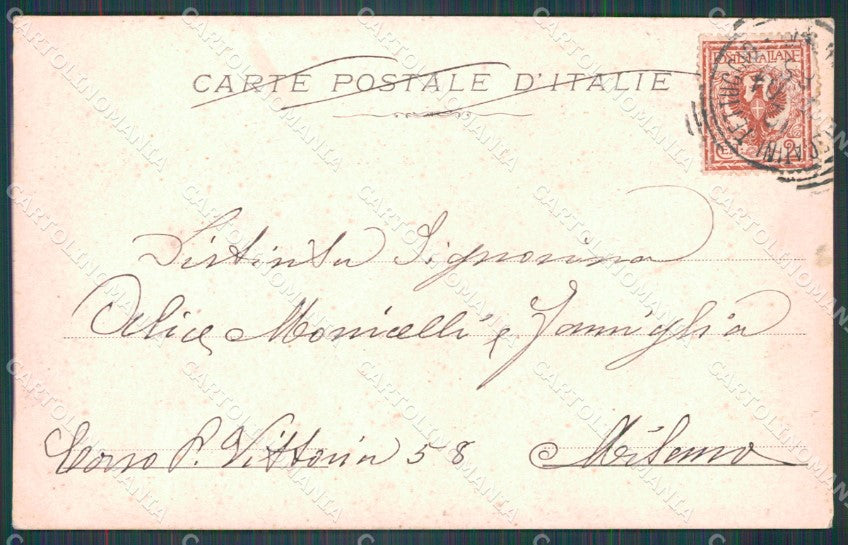 CARTE POSTALE D'ITALIE
POSTE ITALIANE
CENT. 2
TETTUCCIO
Distinta Signorina
Alice Monicelli e Famiglia
Corso P. Vittoria 58 Milano
CARTOLINOMANIA